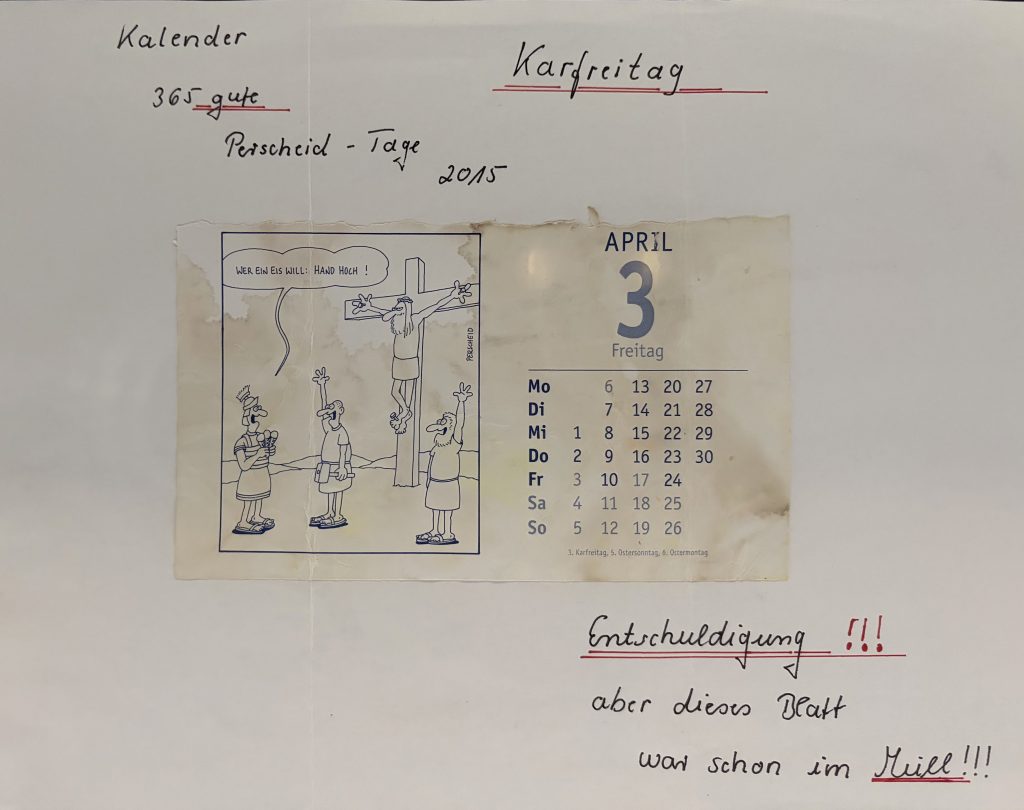 Kalender
365 gute
Perscheid - Tage
2015
Karfreitag
WER EIN EIS WILL: HAND HOCH !
PERSCHEID
APRIL
3
Freitag
Mo 6 13 20 27
Di 7 14 21 28
Mi 1 8 15 22 29
Do 2 9 16 23 30
Fr 3 10 17 24
Sa 4 11 18 25
So 5 12 19 26
3. Karfreitag, 5. Ostersonntag, 6. Ostermontag
Entschuldigung !!!
aber dieses Blatt
war schon im Müll!!!